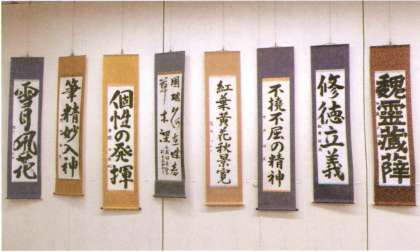 魏靈藏薛
修徳立義
不撓不屈の精神
紅葉黄花秋景寛
個性の発揮
筆精妙入神
雪月風花